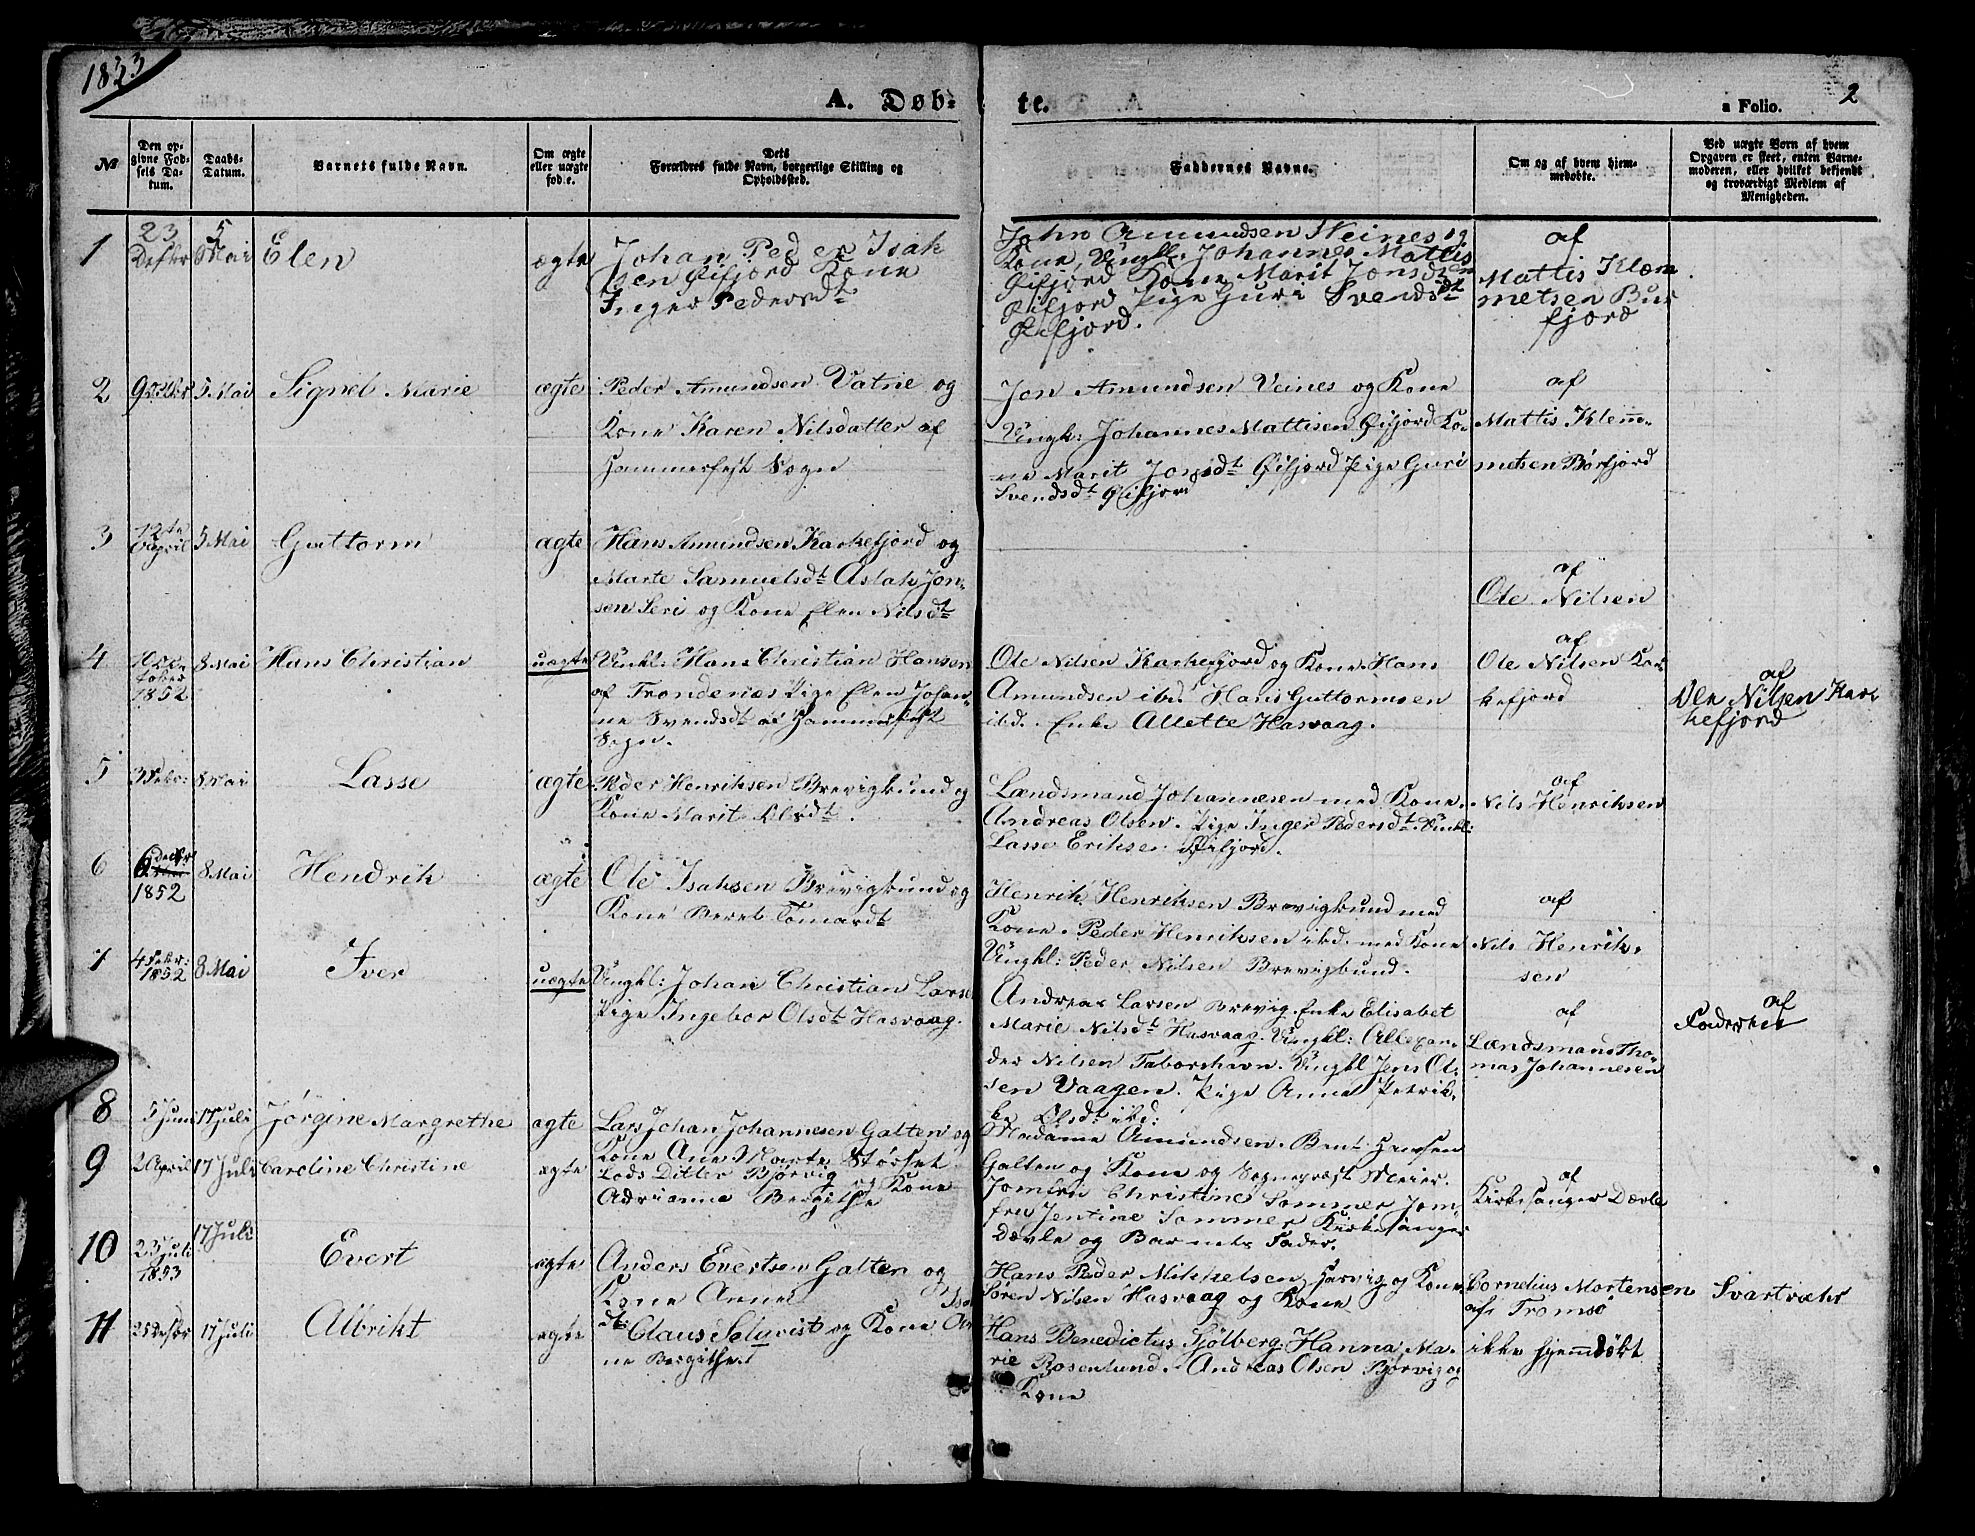 1853
A. Døb-
te.
a Folio.
2
№
Den op-
givne Fød-
sels Da-
tum.
Daabs-
Datum.
Barnets fulde Navn.
Om ægte
eller uægte
født.
Dets
Forældres fulde Navn, borgerlige Stilling og
Opholdssted.
Faddernes Navne.
Om og af hvem hjem-
medøbte.
Ved uægte Børn af hvem
Opgaven er skeet, enten Barne-
moderen, eller hvilket bekjendt
og troværdigt Medlem af
Menigheden.
1
23
5
Mai
Elen
ægte
Johan Peder Isak
sen Øifjord Kone
Inger Pedersdt
John Amundsen Veines og
Kone, Ungkl. Johannes Mattis
Øifjord Kone Marit Jonsdt
Øifjord Pige Guri Svendsdt
Øifjord.
af
Mattis Klem
metsen Bur
fjord
2
5 Mai
Signel Marie
ægte
Peder Amundsen Vatne og
Kone Karen Nilsdatter af
Hammerfest Sogn
Jon Amundsen Veines og Kone
Ungk: Johannes Mattisen Øifjord Ko-
ne Marit Jonsdt Øifjord Pige Guri
Svendsdt Øifjord
af
Mattis Klem-
metsen Børfjord
3
12te
April
5 Mai
Guttorm
ægte
Hans Amundsen Karkefjord og
Marte Samuelsdt Aslak Jon-
sen Seri og Kone Elen Nilsdt
af
Ole Nilsen
4
tober
1852
8 Mai
Hans Christian
uægte
Unkl: Hans Christian Hansen
af Trondenæs Pige Elen Johan-
ne Svendsdt af Hammerfest
Sogn.
Ole Nilsen Karkefjord og Kone. Hans
Amundsen ibd. Hans Guttormsen
ibd. Enke Allette Hasvaag.
af
Ole Nilsen Kar
kefjord
af
Ole Nilsen Kar
kefjord
5
3 Febr:
8 Mai
Lasse
ægte
Peder Henriksen Brevigbund og
Kone Marit Olsdt.
Lændsmand Johannesen med Kone.
Andreas Olsen. Pige Inger Pedersdt. Unkl:
Lasse Eriksen Øifjord.
af
Nils Henriksen
6
6 Decbr
1852
8 Mai
Hendrik
ægte
Ole Isaksen Brevigbund og
Kone Beret Tomasdt
Henrik Henriksen Brevigbund med
Kone. Peder Henriksen ibd. med Kone
Ungkl: Peder Nilsen Brevigbund.
af
Nils Henrik-
sen
7
4 Febr:
1852
8 Mai
Iver
uægte
Ungkl: Johan Christian Larse
Pige Ingebor Olsdt Hasvaag.
Andreas Larsen Brevig. Enke Elisabet
Marie Nilsdt Hasvaag. Ungkl: Allexan-
der Nilsen Taborshavn. Ungkl Jens Ol-
sen Vaagen. Pige Anne Petrik-
ke Olsdt ibd:
af
Lændsmand Tho-
mas Johannesen
af
Faderen
8
5 Juni
17 Juli
Jørgine Margrethe
ægte
Lars Johan Johannesen Galten og
Kone Ane Marte Størset
Madame Amundsen. Bent Hansen
Galten og Kone og Sognepræst Meier.
9
2 April
17 Juli
Caroline Christine
ægte
Lods Bjørvig og Kone
Adrianna Bergithe
Jomfru Christine Sommer Jom-
fru Jentine Sommer Kirkesanger
Dævle og Barnets Fader.
af
Kirkesanger Dævle
10
23 Juli
1853
17 Juli
Evert
ægte
Anders Evertsen Galten og
Kone Anne
dt
Hans Peder Mikkelsen Hasvig og Kone
Søren Nilsen Hasvaag og Kone
Cornelius Mortensen Svartvæhr
af Tromsø
11
17 Juli
Albrikt
ægte
Claus Solqvist og Kone
ne Bergithe
Hans Benedictus Fjølberg Hanna Ma-
rie Rosenlund. Andreas Olsen Bjørvig og
Kone
ikke hjemdøbt